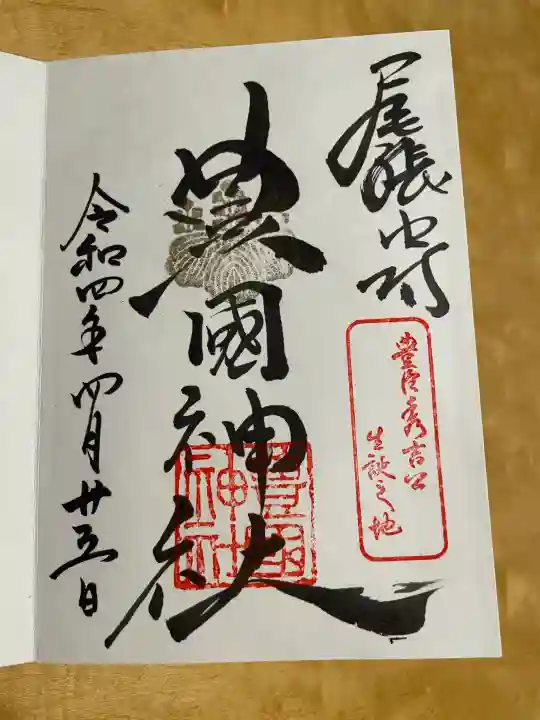 尾張中村
豊臣秀吉公
生誕之地
豊國神社
豊国
神社
令和四年四月廿五日